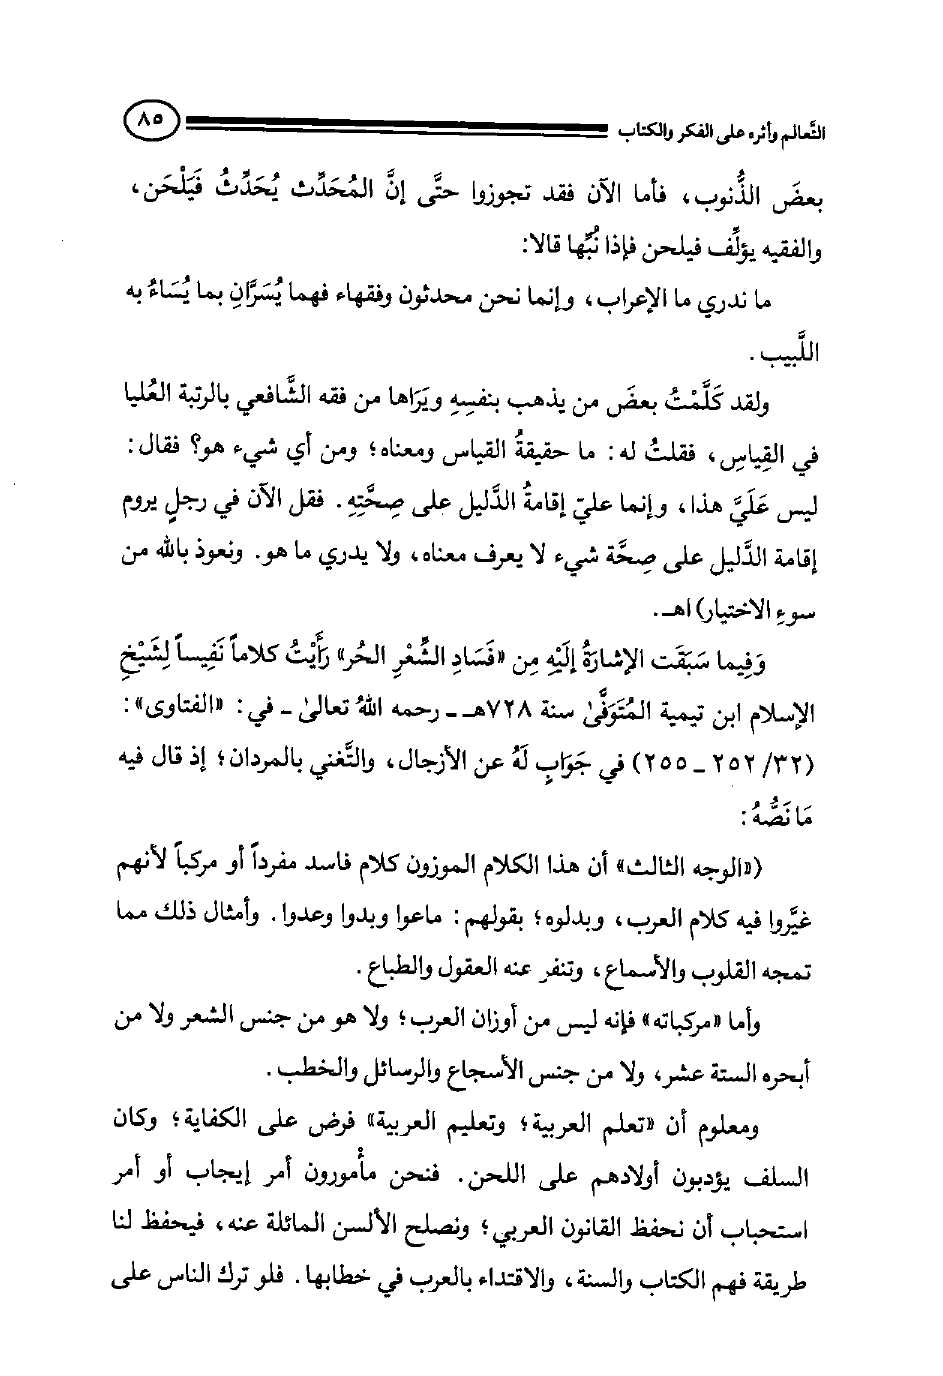 التَّعالم وأثره على الفكر والكتاب ٨٥
بعضَ الذُّنوب، فأما الآن فقد تجوزوا حتَّى إنَّ المُحَدِّث يُحَدِّثُ فَيَلْحَن،
والفقيه يؤلِّف فيلحن فإذا نُبِّها قالا:
ما ندري ما الإعراب، وإنما نحن محدثون وفقهاء فهما يُسَرَّانِ بما يُسَاءُ به
اللَّبيب.
ولقد كَلَّمْتُ بعضَ من يذهب بنفسِهِ ويَرَاها من فقه الشَّافعي بالرتبة العُليا
في القِياسِ، فقلتُ له: ما حقيقةُ القياس ومعناه؛ ومن أي شيء هو؟ فقال:
ليس عَلَيَّ هذا، وإنما عليّ إقامةُ الدَّليل على صِحَّتِهِ. فقل الآن في رجلٍ يروم
إقامة الدَّليل على صِحَّة شيء لا يعرف معناه، ولا يدري ما هو. ونعوذ بالله من
سوءِ الاختيار) اهـ.
وَفِيما سَبَقَت الإشارَةُ إلَيْهِ مِن «فَسَادِ الشِّعْرِ الحُر» رَأَيْتُ كلاماً نَفِيساً لِشَيْخِ
الإسلام ابن تيمية المُتَوَفَّىٰ سنة ٧٢٨هـ ـ رحمه اللهُ تعالىٰ ـ في: «الفتاوى»:
(٣٢/ ٢٥٢ ـ ٢٥٥) في جَوَابٍ لَهُ عن الأزجال، والتَّغني بالمردان؛ إذ قال فيه
مَا نَصُّهُ:
(«الوجه الثالث» أن هذا الكلام الموزون كلام فاسد مفرداً أو مركباً لأنهم
غيَّروا فيه كلام العرب، وبدلوه؛ بقولهم: ماعوا وبدوا وعدوا. وأمثال ذلك مما
تمجه القلوب والأسماع، وتنفر عنه العقول والطباع.
وأما «مركباته» فإنه ليس من أوزان العرب؛ ولا هو من جنس الشعر ولا من
أبحره الستة عشر، ولا من جنس الأسجاع والرسائل والخطب.
ومعلوم أن «تعلم العربية؛ وتعليم العربية» فرض على الكفاية؛ وكان
السلف يؤدبون أولادهم على اللحن. فنحن مأمورون أمر إيجاب أو أمر
استحباب أن نحفظ القانون العربي؛ ونصلح الألسن المائلة عنه، فيحفظ لنا
طريقة فهم الكتاب والسنة، والاقتداء بالعرب في خطابها. فلو ترك الناس على